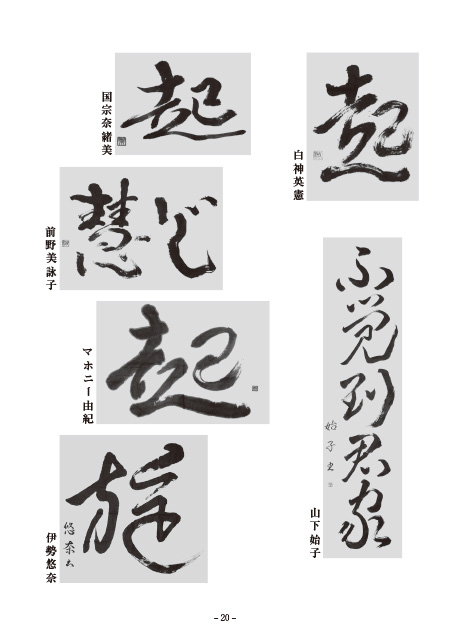 起
白神英憲
不覚到君家
始子
山下始子
起
国宗奈緒美
慧
前野美詠子
起
マホニー由紀
悠奈
伊勢悠奈
- 20 -